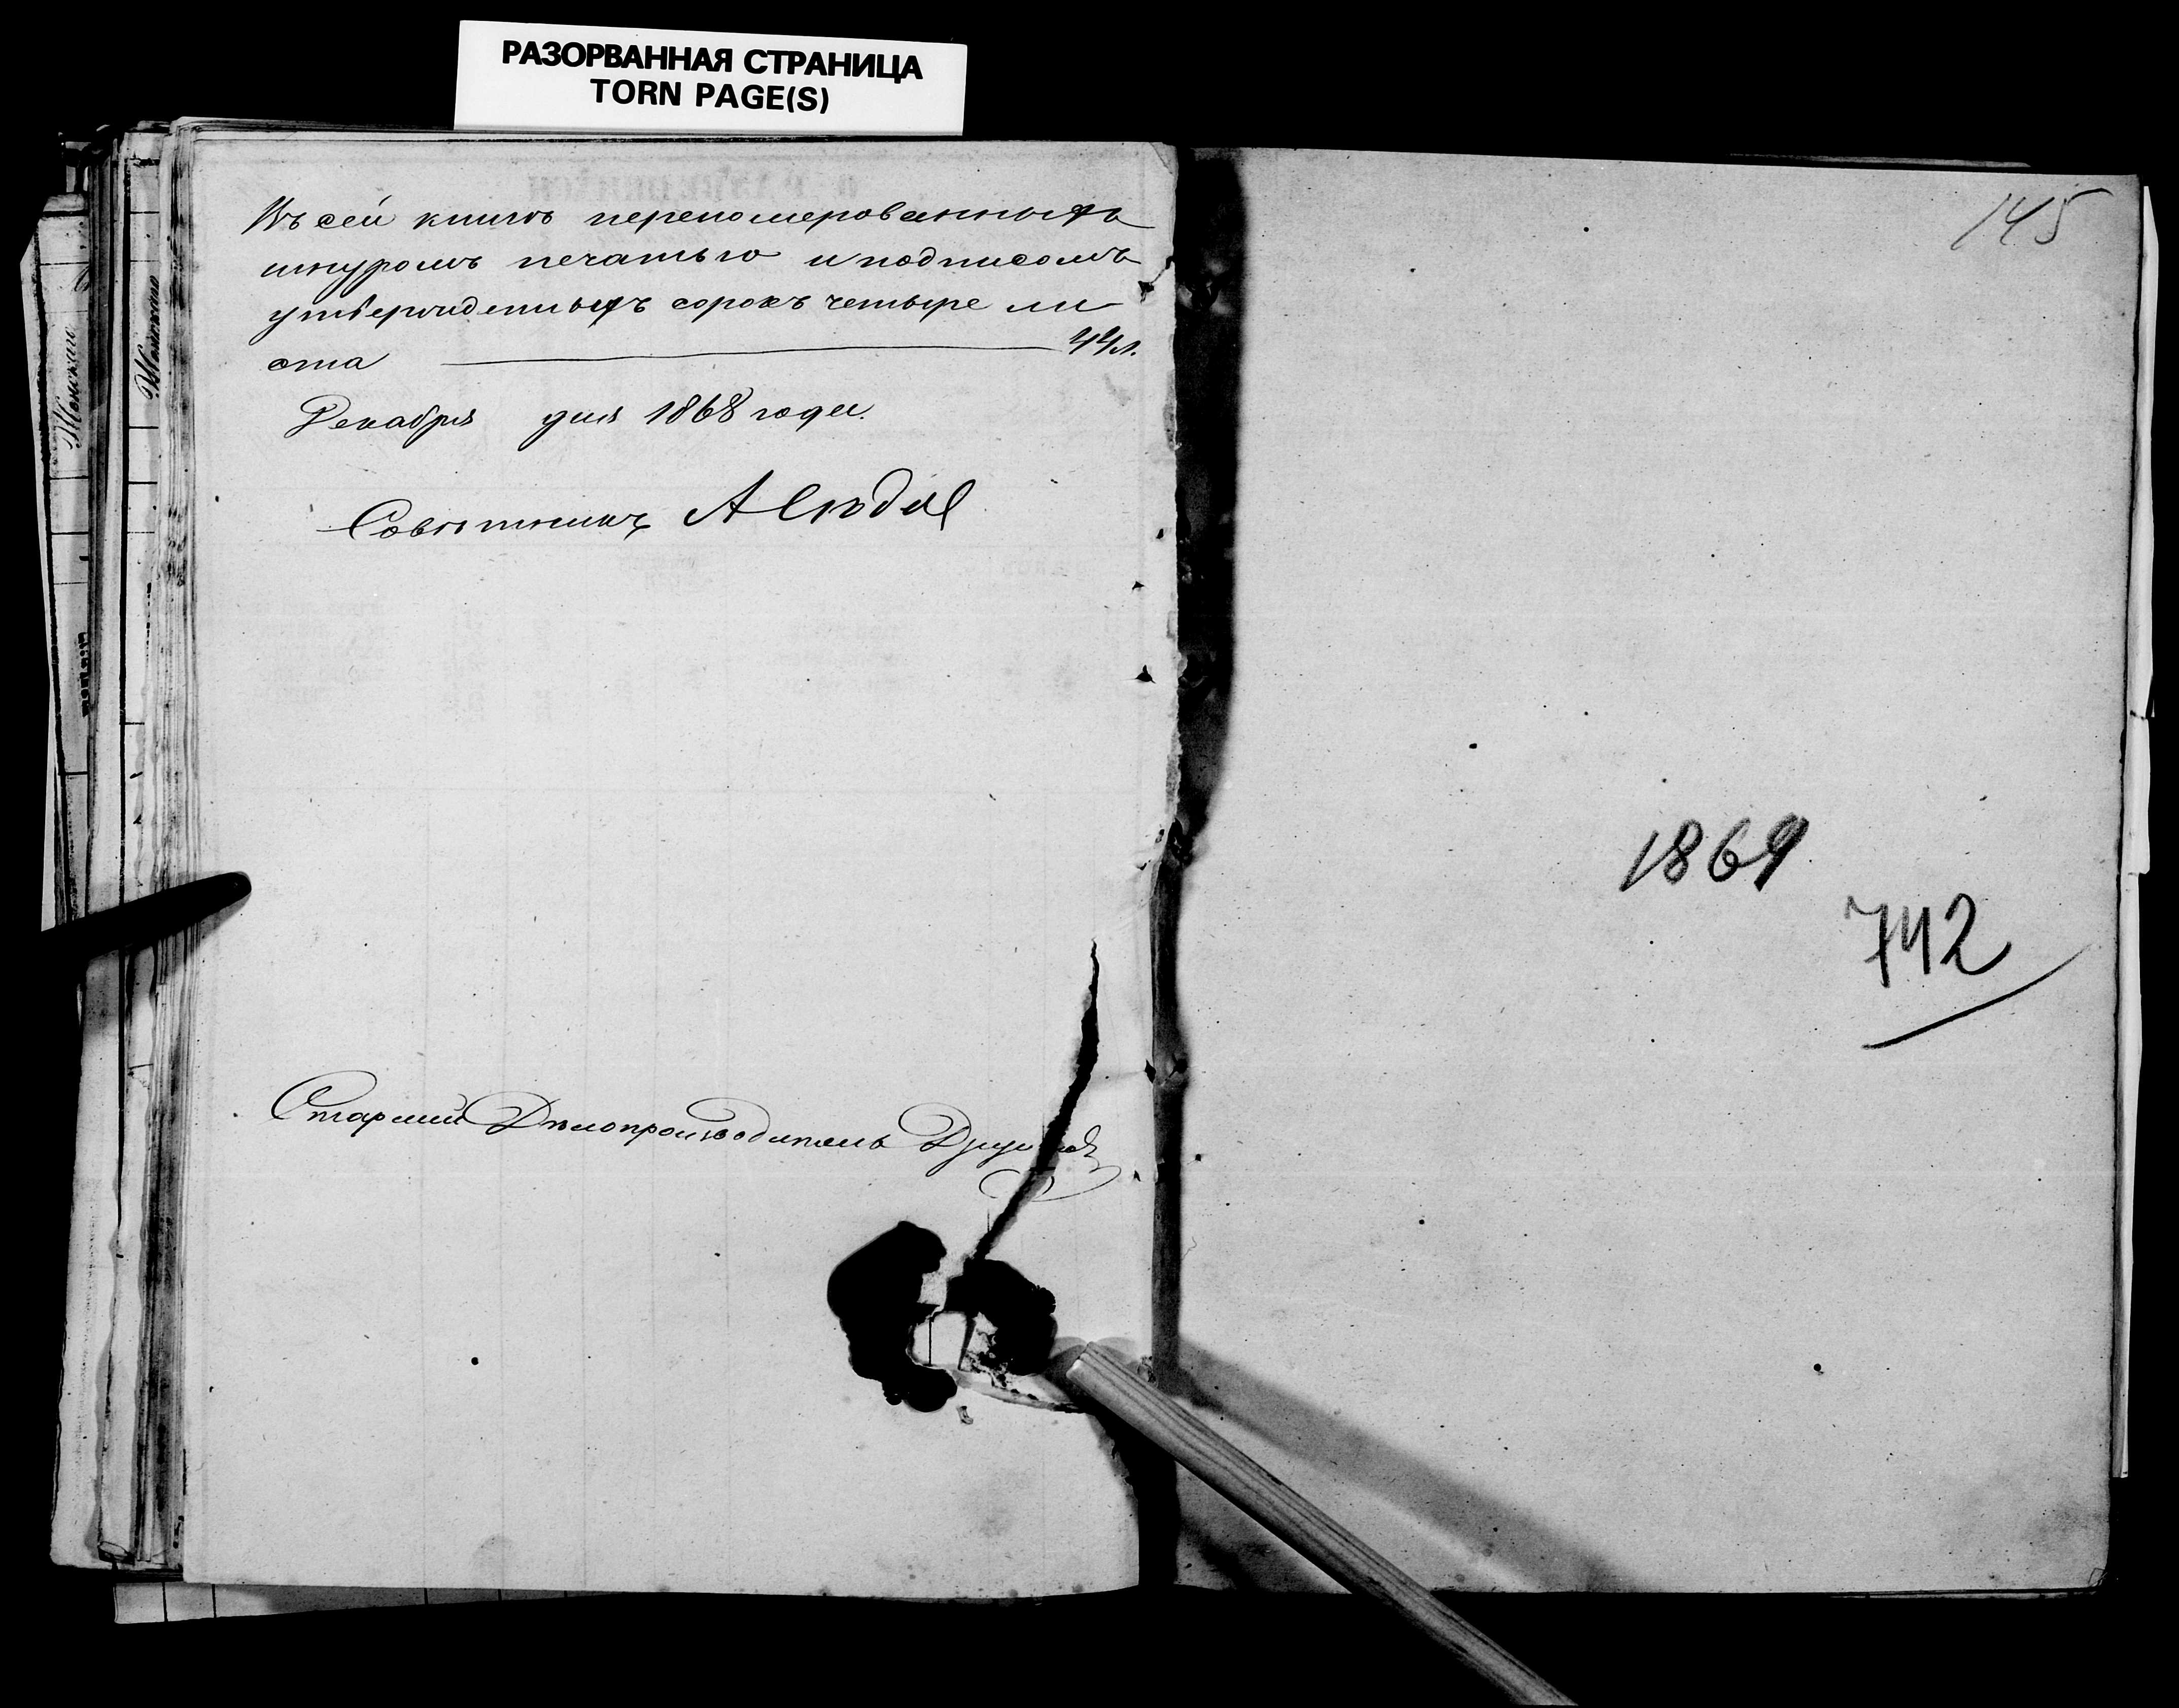 РАЗОРВАННАЯ СТРАНИЦА
TORN PAGE(S)
Въ сей книгѣ переномерованныхъ
шнуромъ печатью и подписомъ
утвержденныхъ сорокъ четыре ли
ста 44 л.
Декабря дня 1868 года.
Совѣтникъ А
Старшій Дѣлопроизводитель
145
1869
742